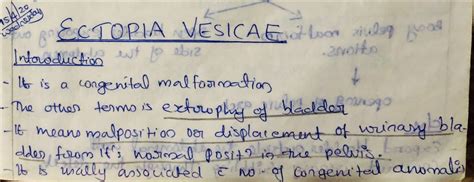 15/4/20
Wednesday
ECTOPIA VESICAE
Introduction
- It is a congenital malformation
- The other terms is extrophy of bladder
- It means malposition or displacement of urinary bla-
dder from it's normal posit? in the pelvis.
- It is usually associated c̄ no. of congenital anomalies